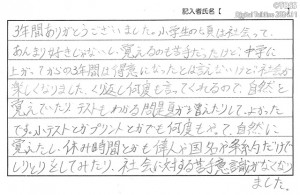 記入者氏名【
3年間ありがとうございました。小学生の頃は社会って、
あんまり好きじゃないし、覚えるのも苦手だったけど、中学に
上がってからの3年間は得意になったとは言えないけど社会が
楽しくなりました。くり返し何度も言ってくれるので、自然と
覚えていたり、テストもわかる問題が増えたりして、よかった
です。小テストとかプリントとかでも何度もやって、自然に
覚えたし、休み時間とかも偉人か国名か県名だけで
しりとりをしてみたり、社会に対する苦手意識がなくなり
ました。